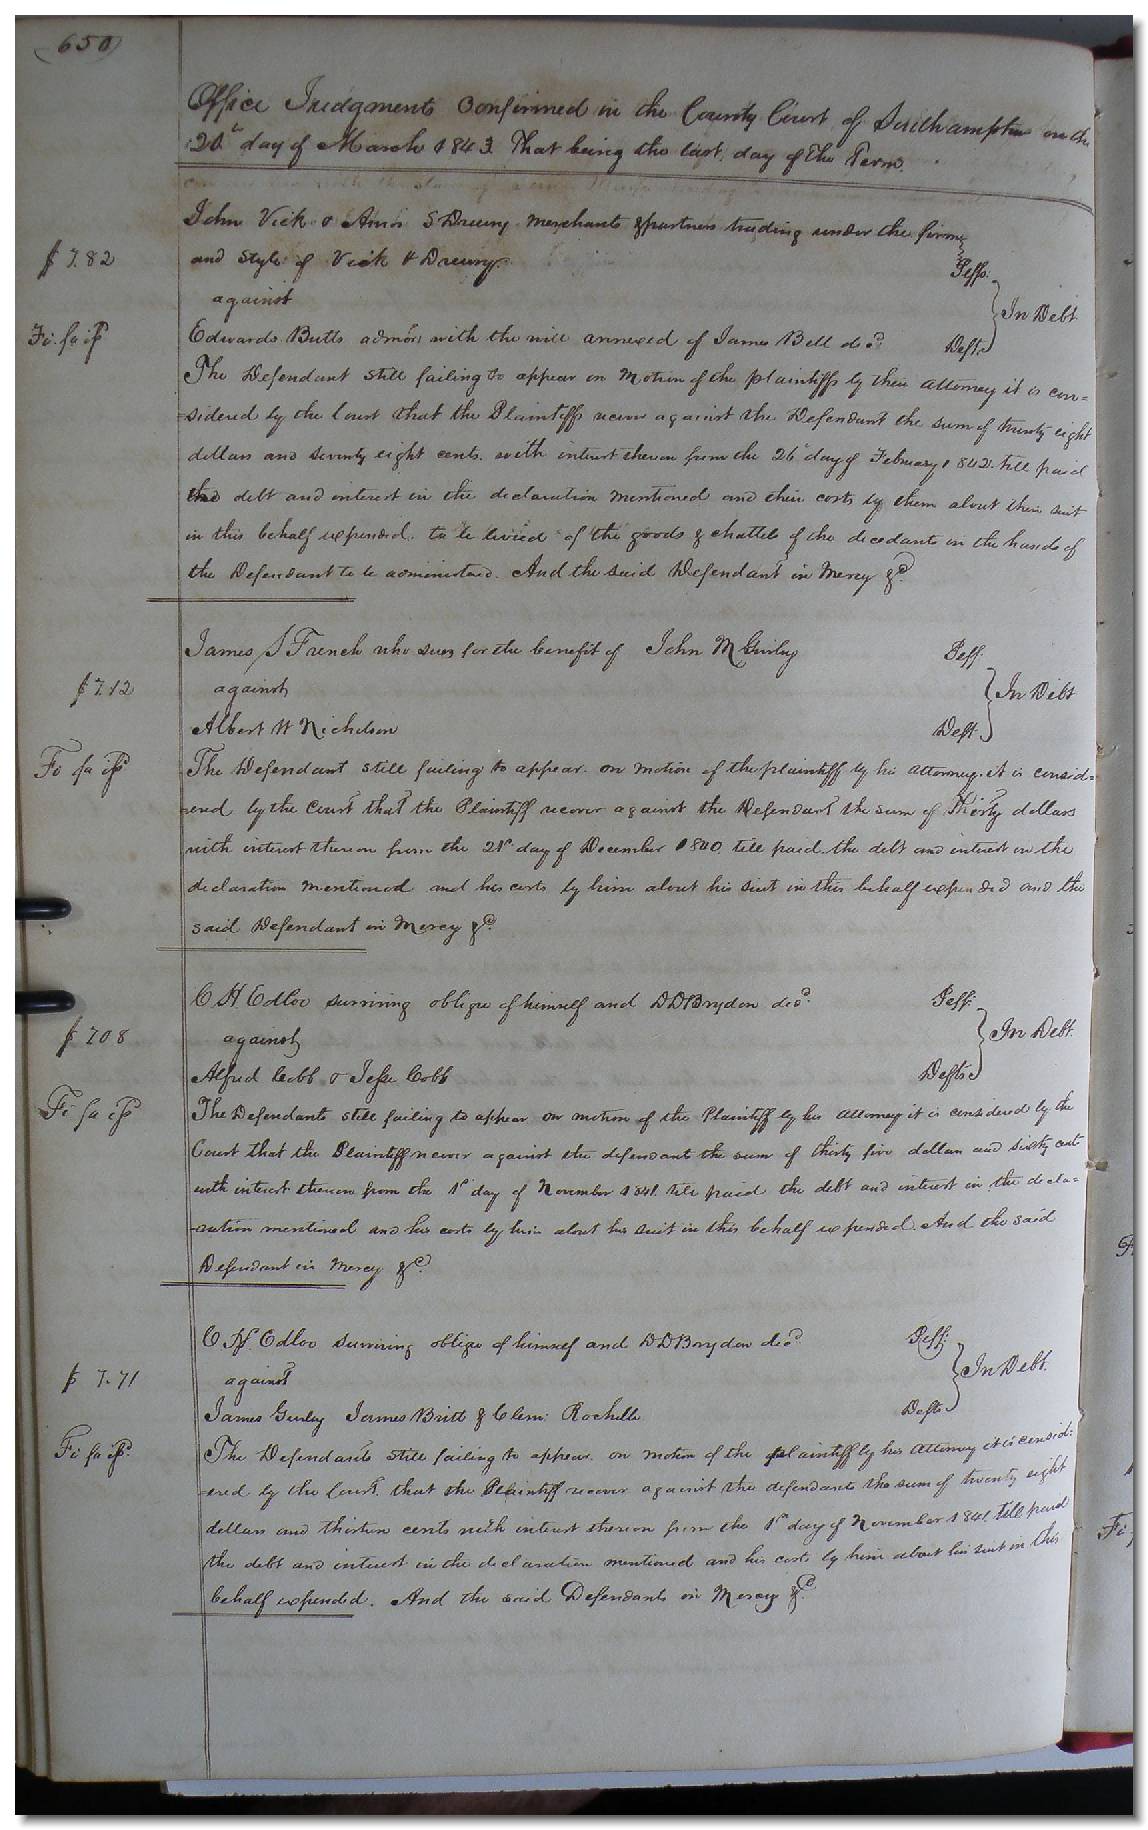 (650)
Office Judgments Confirmed in the County Court of Southampton on the
20th day of March 1843. That being the last day of the Term.
John Vick & Amos S Drewry Merchants & partners trading under the firm
$7.82 and style of Vick & Drewry Peffs.
against In Debt
Fi. fa iss Edwards Butts admor with the will annexed of James Bell decd. Deft.
The Defendant still failing to appear on Motion of the plaintiffs by their attorney it is con=
sidered by the Court that the Plaintiffs recover against the Defendant the sum of thirty eight
dollars and seventy eight cents. with interest thereon from the 26th day of February 1842. till paid
the debt and interest in the declaration mentioned and their costs by them about their suit
in this behalf expended. to be levied of the goods & chattels of the decedants in the hands of
the Defendant to be administered. And the said Defendant in Mercy &c.
James S French who sues for the benefit of John M Gurley Peff.
$7.12 against In Debt
Albert W Nicholson Deft.
Fi fa iss The Defendant still failing to appear on motion of the plaintiff by his attorney. it is consid=
ered by the Court that the Plaintiff recover against the Defendant the sum of Thirty dollars
with interest thereon from the 21st day of December 1840. till paid. the debt and interest in the
declaration mentioned and his costs by him about his suit in this behalf expended and the
said Defendant in Mercy &c.
C H Edloe surviving obligee of himself and D D Brydon decd. Peff.
$7.08 against In Debt.
Alfred Cobb & Jesse Cobb Defts
Fi fa iss The Defendants still failing to appear on motion of the Plaintiff by his attorney it is considered by the
Court that the Plaintiff recover against the defendant the sum of thirty five dollars and sixty cents
with interest thereon from the 1st day of November 1841. till paid the debt and interest in the decla=
ration mentioned and his costs by him about his suit in this behalf expended. And the said
Defendant in Mercy &c.
C H Edloe surviving obligee of himself and D D Brydon decd. Peff.
$7.71 against In Debt.
James Gurley James Britt & Clem: Rochelle Defts
Fi fa iss The Defendants still failing to appear. on motion of the plaintiff by his attorney it is consid=
ered by the Court. that the Plaintiff recover against the defendants the sum of twenty eight
dollars and thirteen cents with interest thereon from the 1st day of November 1841. till paid
the debt and interest in the declaration mentioned and his costs by him about his suit in this
behalf expended. And the said Defendants in Mercy &c.